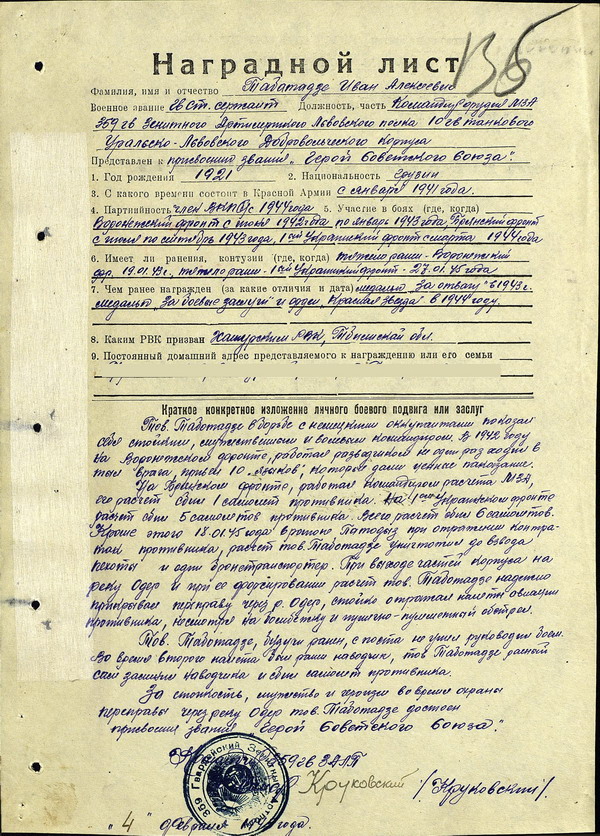 136
Наградной лист
Фамилия, имя и отчество Таботадзе Иван Алексеевич
Воинское звание гв. ст. сержант Должность, часть Командир орудия МЗА
359 гв Зенитного Артиллерийского Львовского полка 10 гв танкового
Уральско-Львовского Добровольческого Корпуса
Представлен к присвоению звания "Герой Советского Союза".
1. Год рождения 1921 2. Национальность грузин
3. С какого времени состоит в Красной Армии с января 1941 года.
4. Партийность член ВКП(б) с 1944 года 5. Участие в боях (где, когда)
Воронежский фронт с июля 1942 года по январь 1943 года, Брянский фронт
с июля по сентябрь 1943 года, 1 ый Украинский фронт с марта 1944 года
6. Имеет ли ранения, контузии (где, когда) тяжело ранен - Воронежский
фр. 19.01.43 г., тяжело ранен - 1 ый Украинский фронт - 27.01.45 года
7. Чем ранее награжден (за какие отличия и дата) медалью "За отвагу" в 1943 г.
медалью "За боевые заслуги" и орден "Красная Звезда" в 1944 году.
8. Каким РВК призван Хашурским РВК, Тбилисской обл.
9. Постоянный домашний адрес представляемого к награждению или его семьи
Краткое конкретное изложение личного боевого подвига или заслуг
Тов. Таботадзе в борьбе с немецкими оккупантами показал
себя стойким, мужественным и волевым командиром. В 1942 году
на Воронежском фронте, работая разведчиком не один раз ходил в
тыл врага, привел 10 "языков", которые дали ценные показания.
На Брянском фронте, работая командиром расчета МЗА,
его расчет сбил 1 самолет противника. На 1 ый Украинском фронте
расчет сбил 5 самолетов противника. Всего расчет сбил 6 самолетов.
Кроме этого 18.01.45 года в районе при отражении контр-
атак противника, расчет тов. Таботадзе уничтожил до взвода
пехоты и один бронетранспортер. При выходе частей корпуса на
реку Одер и при ее форсировании расчет тов. Таботадзе надежно
прикрывал переправу через р. Одер, стойко отражал налеты авиации
противника, несмотря на бомбежку и пушечно-пулеметный обстрел.
Тов. Таботадзе, будучи ранен, с поста не ушел руководил боем.
Во время второго налета был ранен наводчик, тов Таботадзе раненый
сам заменил наводчика и сбил самолет противника.
За стойкость, мужество и героизм во время охраны
переправы через реку Одер тов. Таботадзе достоин
присвоения звания "Герой Советского Союза".
359 гв ЗАП
Круковский /Круковский/.
"4" февраля года.